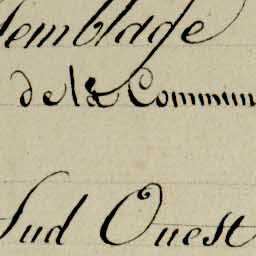 semblage
de la Commun
Sud Ouest